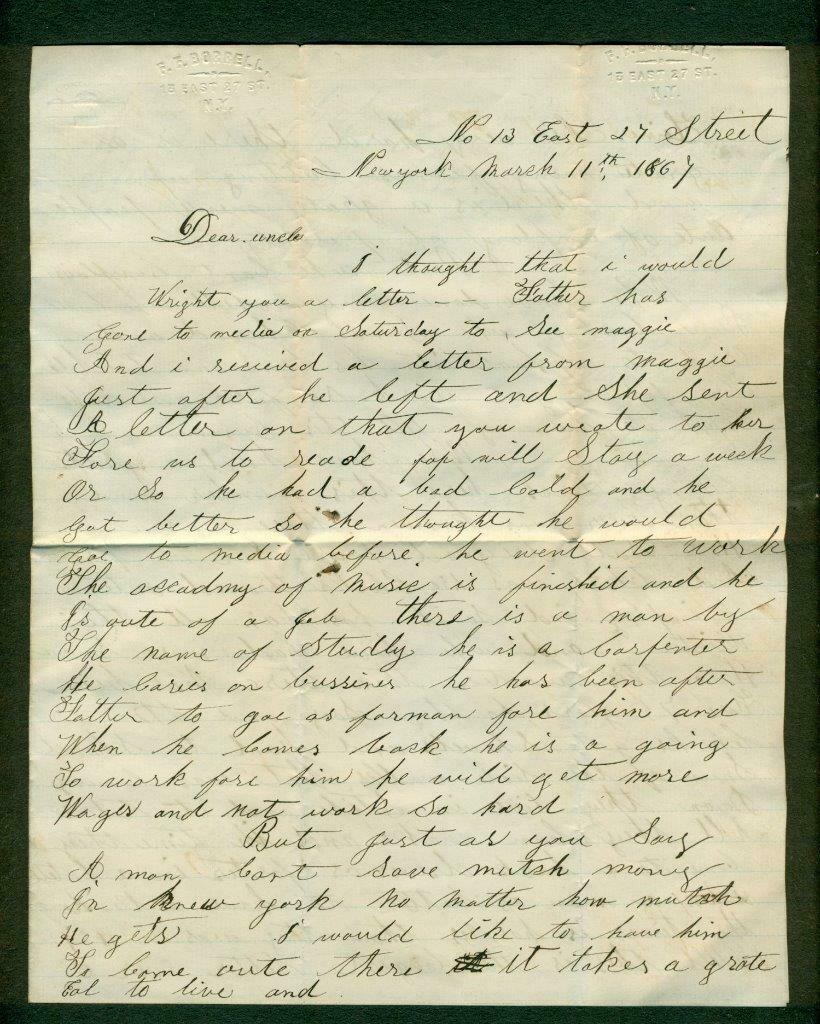 F. F. BORRELL,
13 EAST 27 ST.
N.Y.
F. F. BORRELL,
13 EAST 27 ST.
N.Y.
No 13 East 27 Street
Newyork March 11th, 1867
Dear uncle
I thought that i would
Wright you a letter - - Father has
Gone to media on Saturday to, See maggie
And i recieved a letter from maggie
just after he left and She sent
A letter on that you wrote to her
Fore us to reade pap will Stay a week
Or So he had a bad Cold and he
Got better so he thought he would
Goe to media before he went to work
The accadmy of music is finished and he
Is oute of a job there is a man by
The name of Studly he is a Carpenter
He Caries on bussines he has been after
Father to goe as forman fore him and
When he Comes back he is a going
To work fore him he will get more
Wages and not work so hard
But just as you Say
A man Cant save mutch money
In new york no matter how mutch
He gets I would like to have him
To Come oute there it takes a grate
Eal to live and